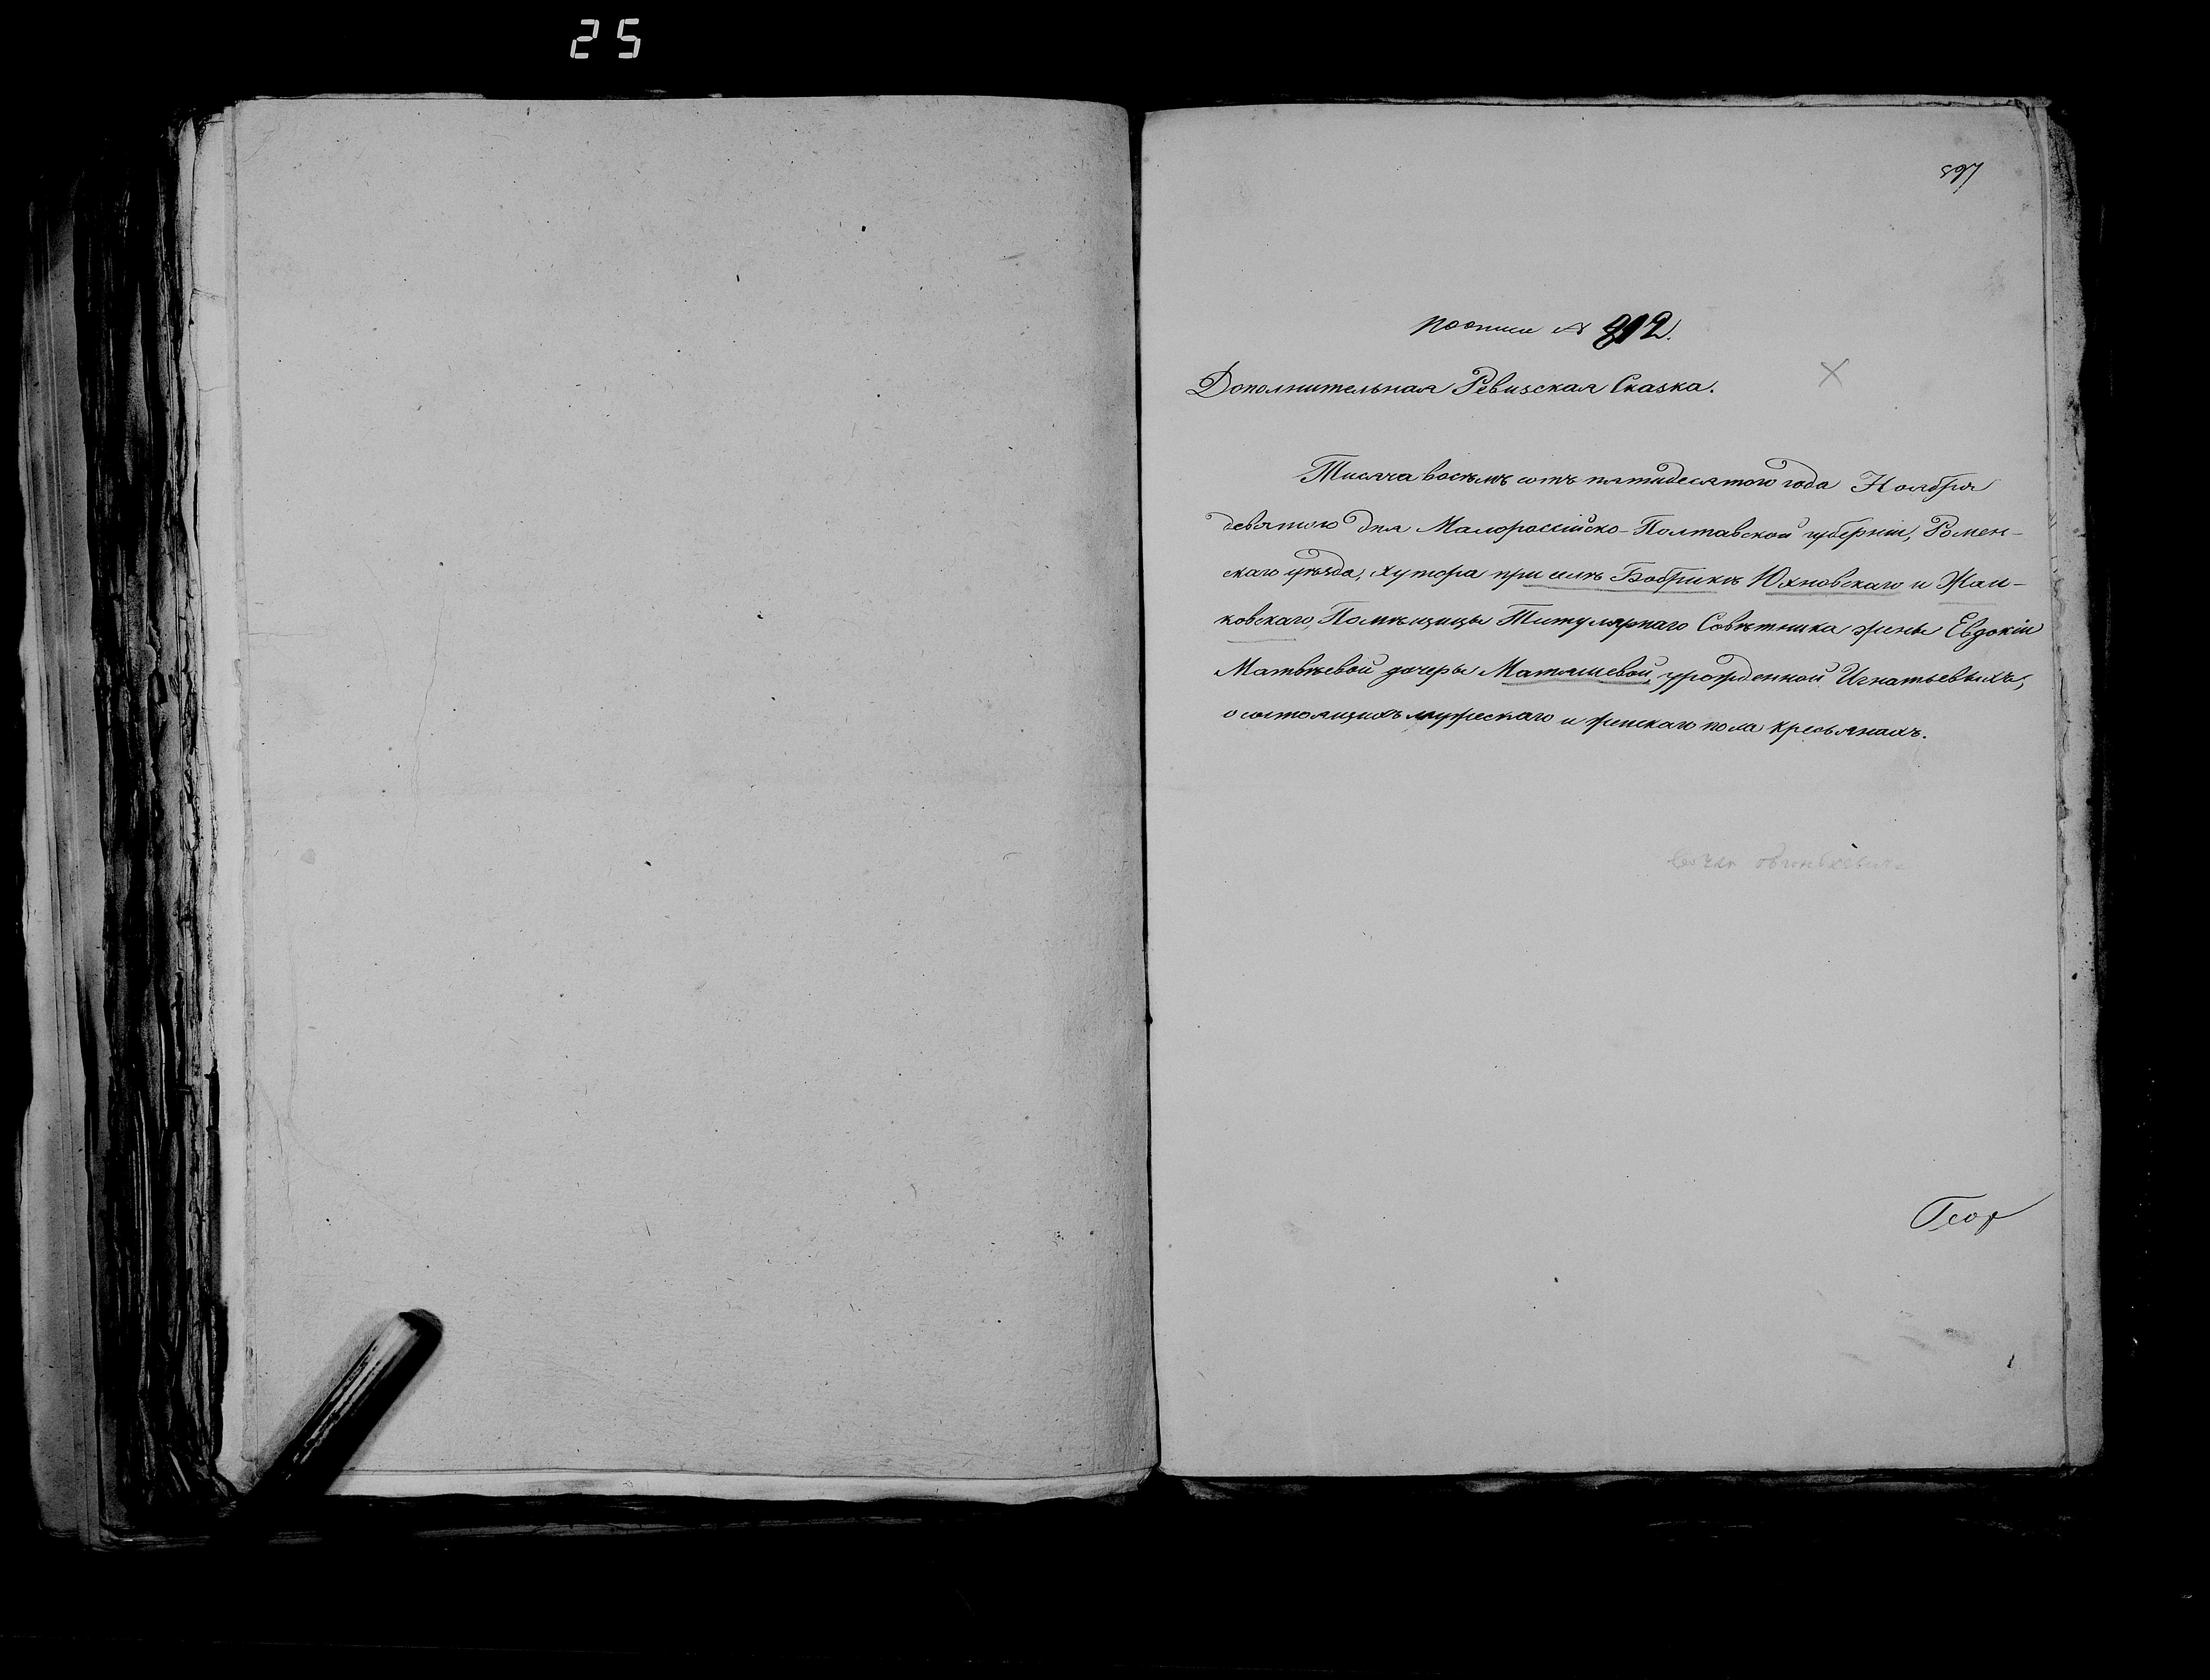 25
597
По описи № 912.
Дополнительная Ревизская Сказка.
Тисяча восемъ сотъ пятидесятого года Ноября
девятого дня Малороссійско-Полтавской губерніи, Ромен-
скаго уѣзда, хутора при селѣ Бобрикѣ Юхновскаго и
ковскаго, Помѣщицы Титулярнаго Совѣтника жены Евдокіи
Матвѣевой дочеры Маталиевой, урожденной Игнатьевыхъ,
о состоящихъ мужескаго и женскаго пола крестьянахъ.